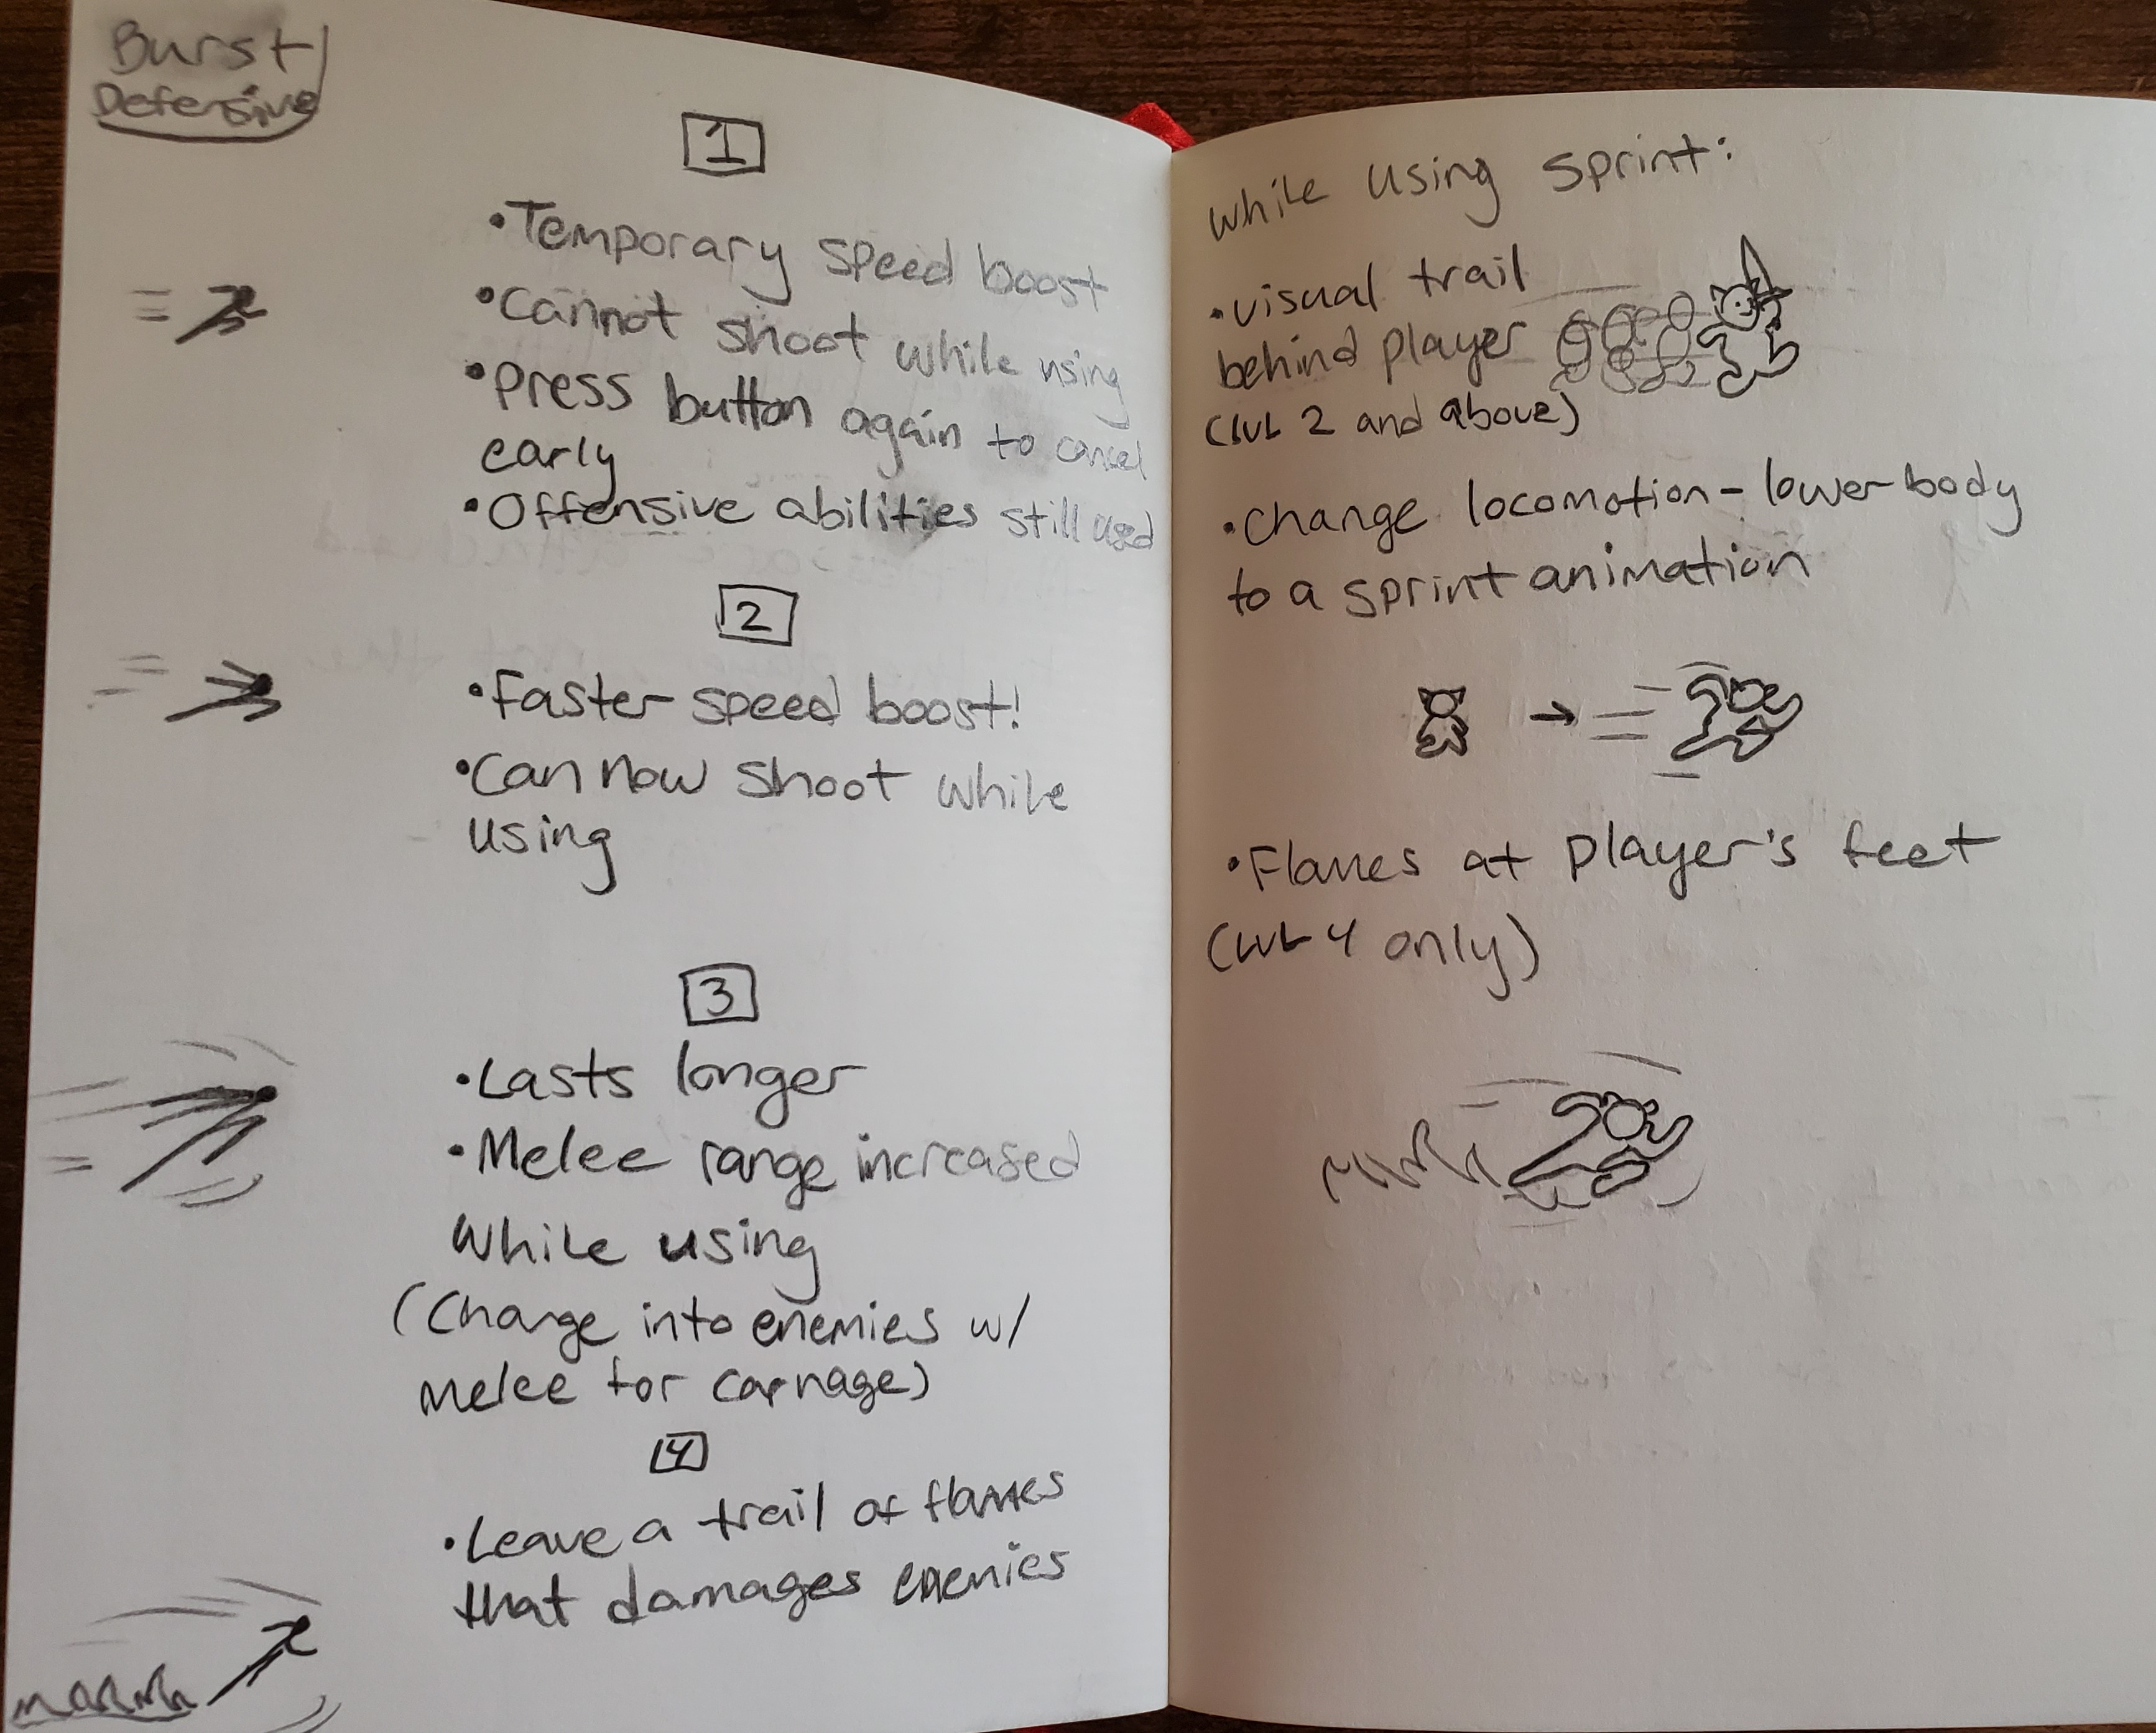 Burst
Defensive
1
•Temporary speed boost
•Cannot shoot while using
•Press button again to cancel
early
•Offensive abilities still used
2
•Faster speed boost!
•Can now shoot while
using
3
•Lasts longer
•Melee range increased
while using
(Charge into enemies w/
melee for carnage)
4
•Leave a trail of flames
that damages enemies
while using sprint:
•visual trail
behind player
(LVL 2 and above)
•Change locomotion - lower body
to a sprint animation
•Flames at player's feet
(LVL 4 only)